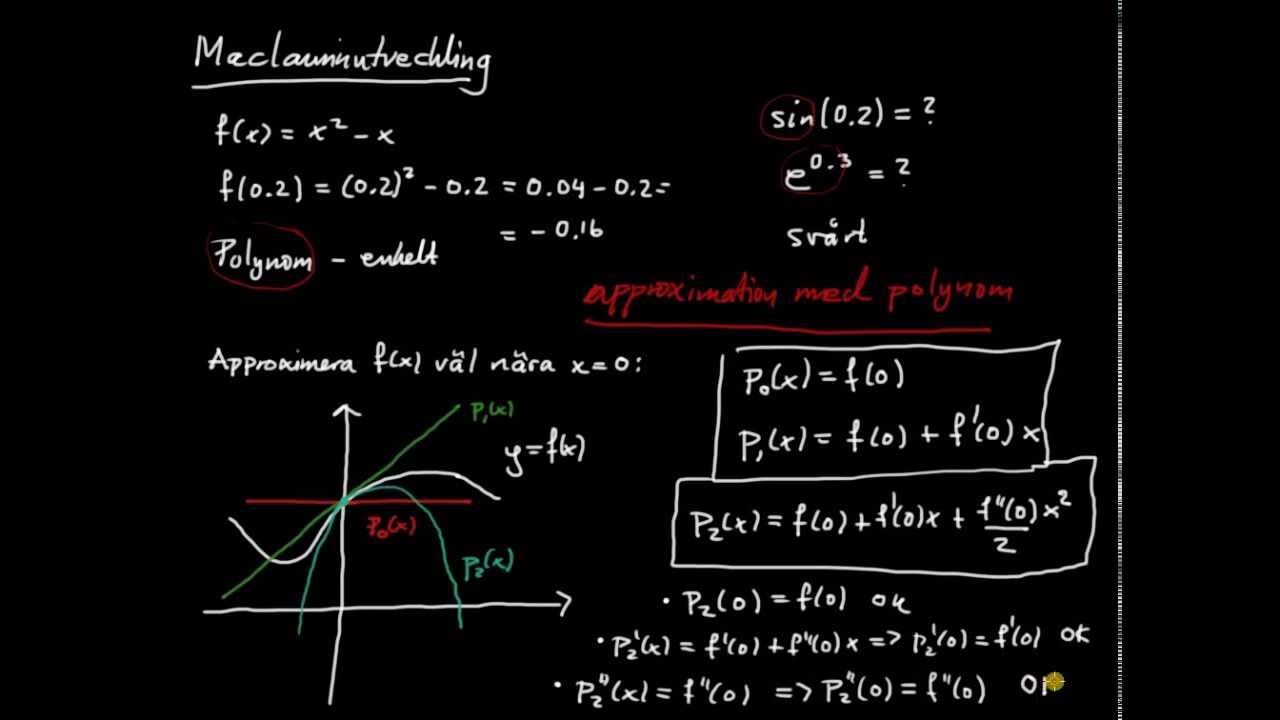 Maclaurinutveckling
f(x) = x² - x
f(0.2) = (0.2)² - 0.2 = 0.04 - 0.2 =
= - 0.16
Polynom - enkelt
sin(0.2) = ?
e^0.3 = ?
svårt
approximation med polynom
Approximera f(x) väl nära x=0:
P₁(x)
y=f(x)
P₀(x)
P₂(x)
P₀(x) = f(0)
P₁(x) = f(0) + f'(0)x
P₂(x) = f(0) + f'(0)x + f''(0)/2 x²
• P₂(0) = f(0) ok
• P₂'(x) = f'(0) + f''(0)x => P₂'(0) = f'(0) ok
• P₂''(x) = f''(0) => P₂''(0) = f''(0)